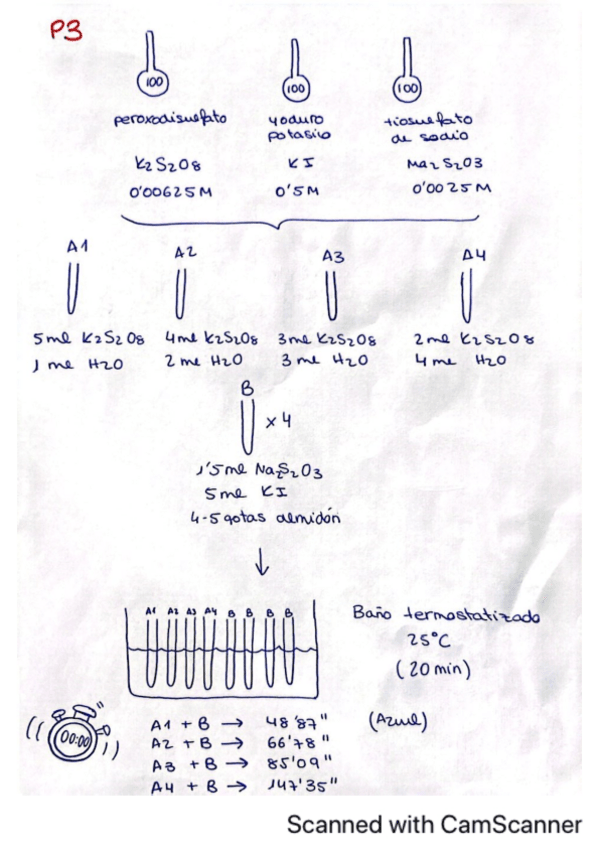 P3
100 100 100
peroxodisulfato yoduro tiosulfato
potasio de sodio
K2S2O8 KI Na2S2O3
0'00625M 0'5M 0'0025M
A1 A2 A3 A4
5ml K2S2O8 4ml K2S2O8 3ml K2S2O8 2ml K2S2O8
1 ml H2O 2 ml H2O 3 ml H2O 4 ml H2O
B
x4
1'5ml Na2S2O3
5ml KI
4-5 gotas almidón
A1 A2 A3 A4 B B B B
Baño termostatizado
25°C
(20 min)
00:00
A1 + B → 48'87" (Azul)
A2 + B → 66'78"
A3 + B → 85'09"
A4 + B → 147'35"
Scanned with CamScanner